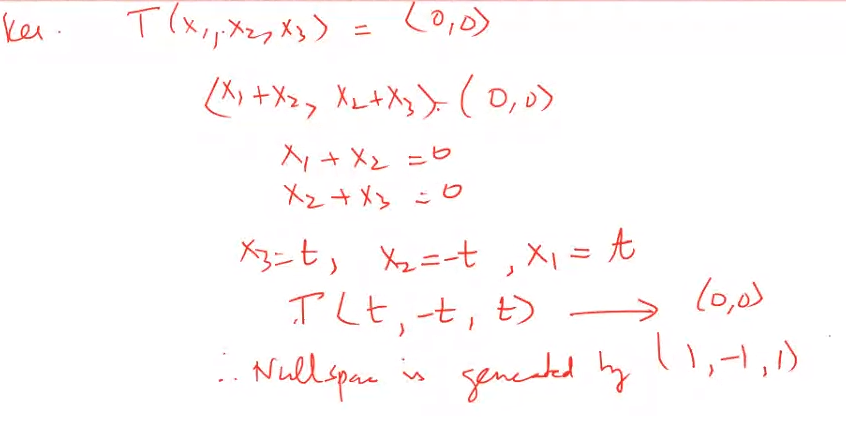 Ker. T(x₁, x₂, x₃) = (0,0)
(x₁+x₂, x₂+x₃) = (0,0)
x₁ + x₂ = 0
x₂ + x₃ = 0
x₃=t, x₂=-t, x₁ = t
T(t, -t, t) ⟶ (0,0)
∴ Nullspace is generated by (1,-1,1)